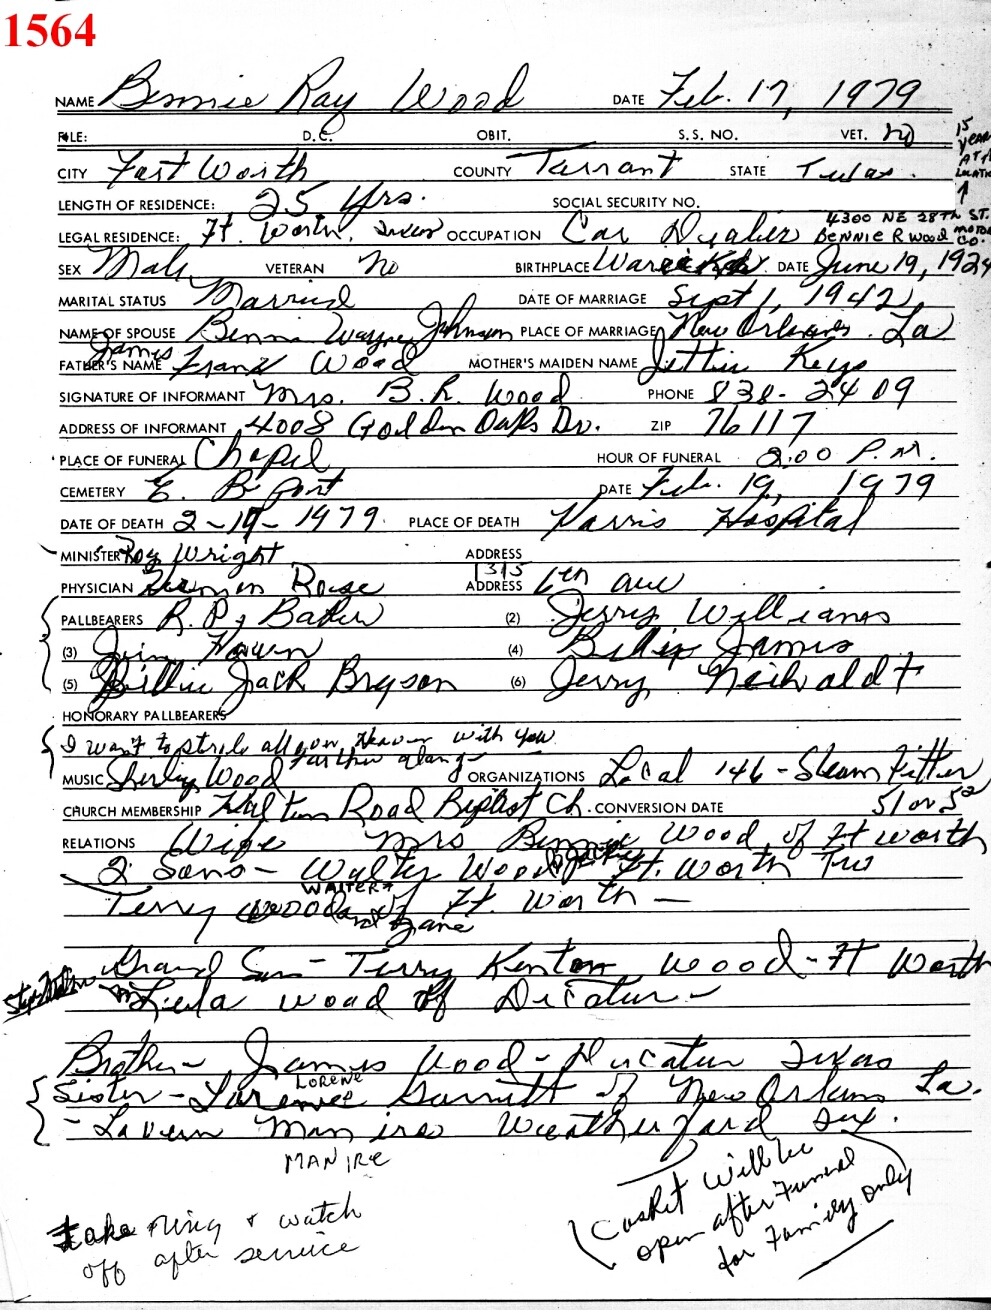 1564
NAME Bennie Ray Wood DATE Feb. 17, 1979
FILE: D.C. OBIT. S.S. NO. VET. no
15 YEARS AT
CITY Fort Worth COUNTY Tarrant STATE Texas.
LENGTH OF RESIDENCE: 25 Yrs. SOCIAL SECURITY NO.
4300 NE 28TH ST.
LEGAL RESIDENCE: Ft. Worth, Texas OCCUPATION Car Dealer BENNIE R WOOD MOTOR CO.
SEX Male VETERAN No BIRTHPLACE DATE June 19, 1924
MARITAL STATUS Married DATE OF MARRIAGE Sept 1, 1942
NAME OF SPOUSE Bennie Wayne Johnson PLACE OF MARRIAGE New Orleans. La
James
FATHER'S NAME Frank Wood MOTHER'S MAIDEN NAME Jettie Keys
SIGNATURE OF INFORMANT Mrs. B.R. Wood PHONE 838-2409
ADDRESS OF INFORMANT 4008 Golden Oaks Dr. ZIP 76117
PLACE OF FUNERAL Chapel HOUR OF FUNERAL 2:00 P.M.
CEMETERY E. Bpont DATE Feb. 19, 1979
DATE OF DEATH 2-17-1979. PLACE OF DEATH Harris Hospital
MINISTER Roy Wright ADDRESS
PHYSICIAN Rouse ADDRESS 1315 6th ave
PALLBEARERS R. P. Baker (2) Jerry Williams
(3) Jim (4) Billie James
(5) Billie Jack Bryson (6) Jerry Neihvaldt
HONORARY PALLBEARERS
I want to strole all over Heaven with you
Farther along-
MUSIC Shirley Wood ORGANIZATIONS Local 146 - Steam Fitter
CHURCH MEMBERSHIP Haltom Road Baptist Ch. CONVERSION DATE 51 or 52
RELATIONS Wife Mrs Bennie Wood of Ft Worth
2 Sons - Walter Wood Ft. Worth Tex
WALTER
Terry Wood of Ft. Worth -
and Jane
Grand Son - Terry Kenton Wood - Ft Worth
Leela Wood of Decatur -
Brother - James Wood - Decatur Texas
LORENE
Sister - Garrett of New Orleans La.
- Lavern Manire Weatherford Tex.
MANIRE
Take Ring & watch
off after service
Casket Will be
open after Funeral
for Family only